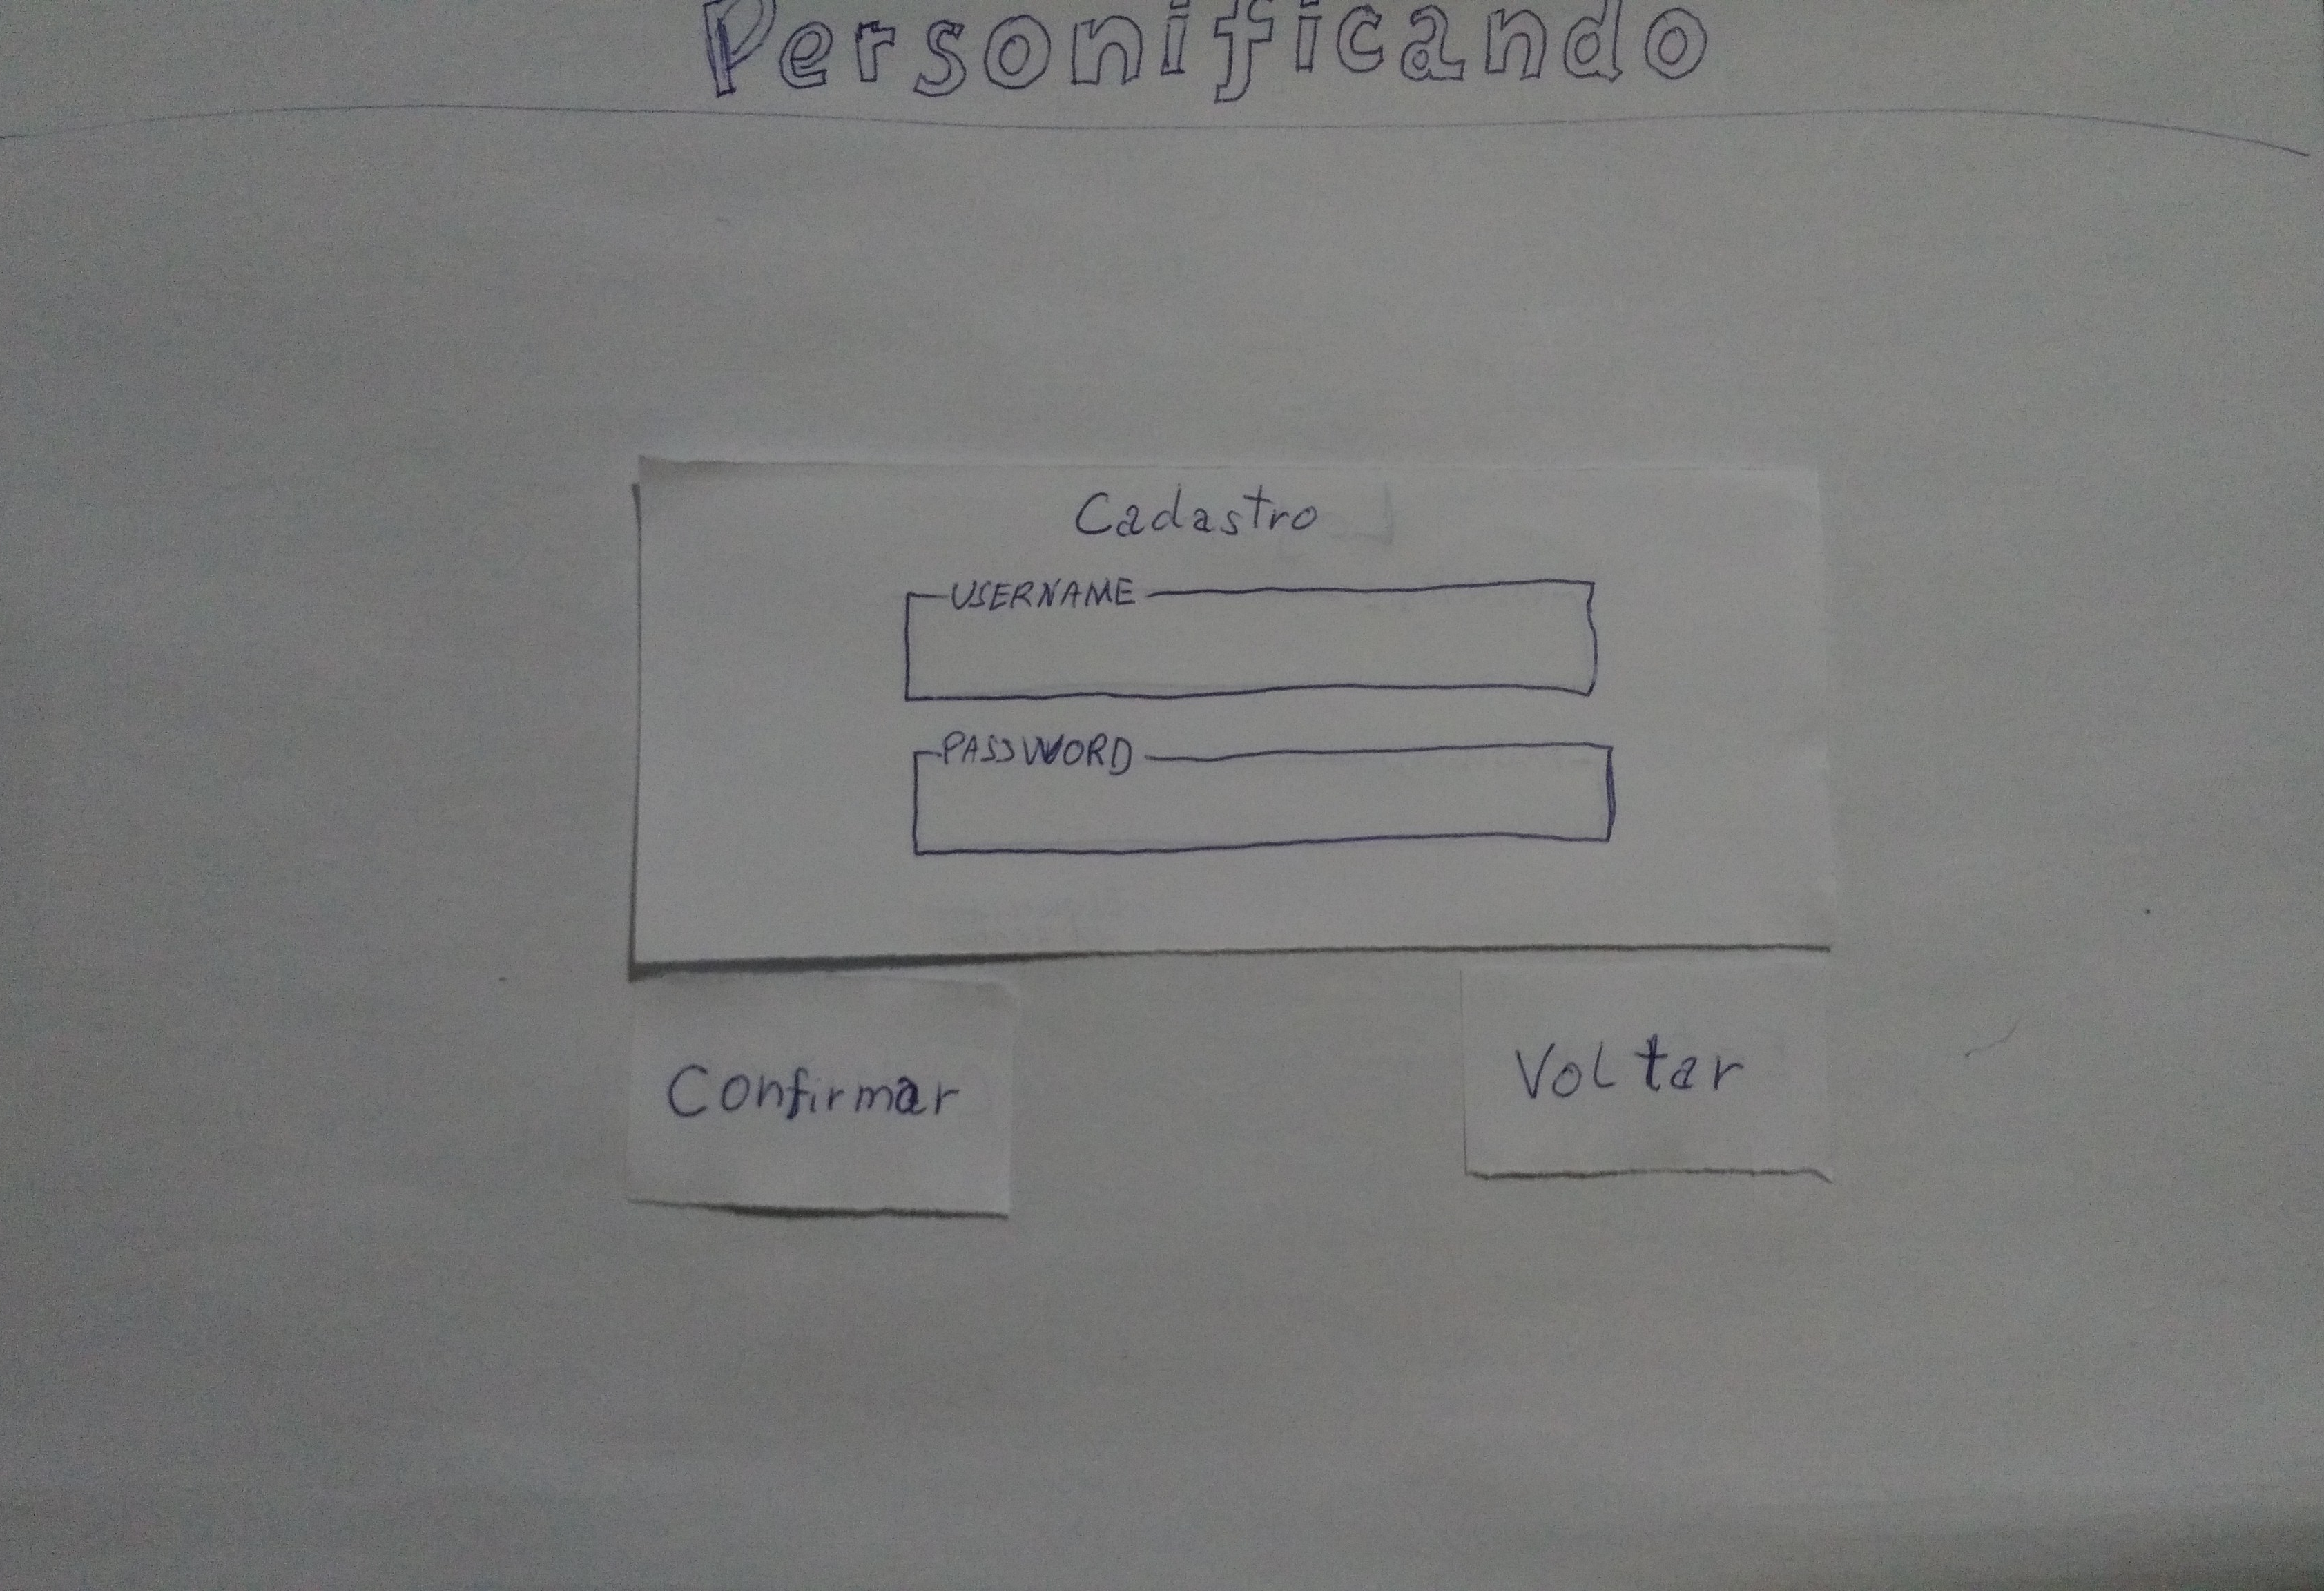 Personificando
Cadastro
USERNAME
PASSWORD
Confirmar
Voltar